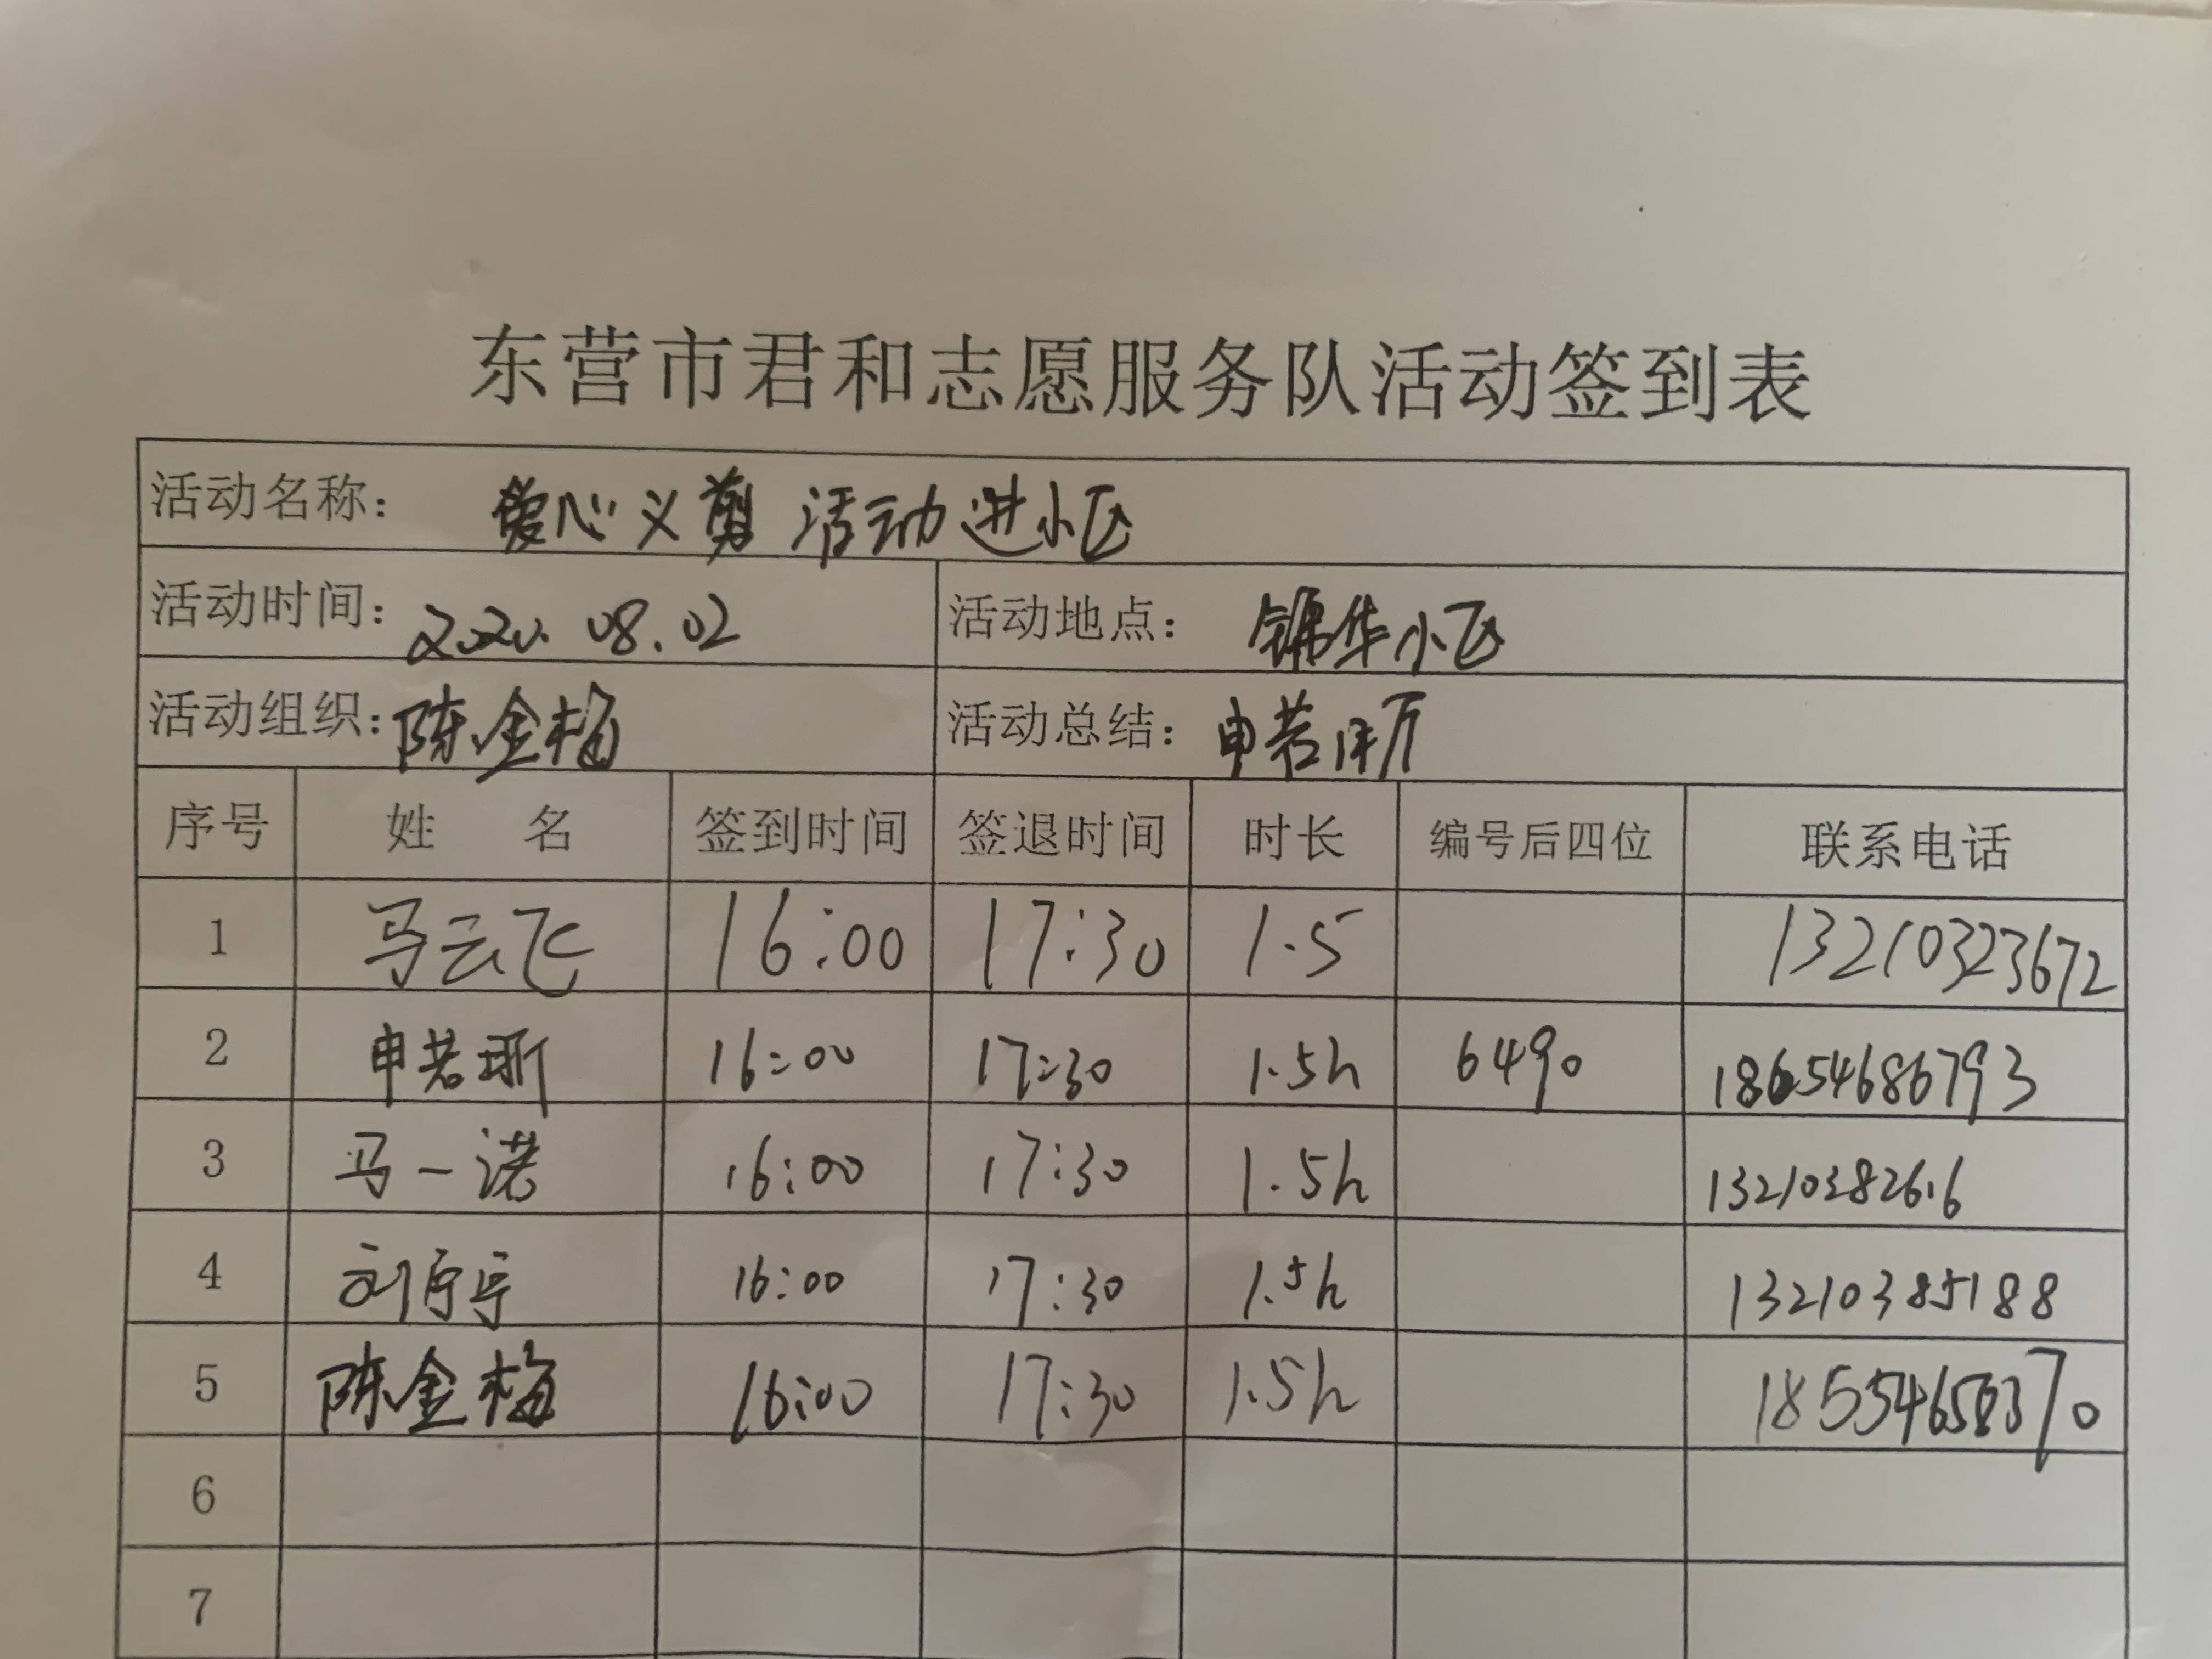 东营市君和志愿服务队活动签到表
活动名称： 爱心义剪 活动进小区
活动时间： 2020. 08.02 活动地点： 锦华小区
活动组织： 陈金梅 活动总结： 申若
序号 姓 名 签到时间 签退时间 时长 编号后四位 联系电话
1 马云飞 16:00 17:30 1.5 13210323672
2 申若 16:00 17:30 1.5h 6490 18654686793
3 马一诺 16:00 17:30 1.5h 13210382616
4 刘宁宁 16:00 17:30 1.5h 13210385188
5 陈金梅 16:00 17:30 1.5h
6
7